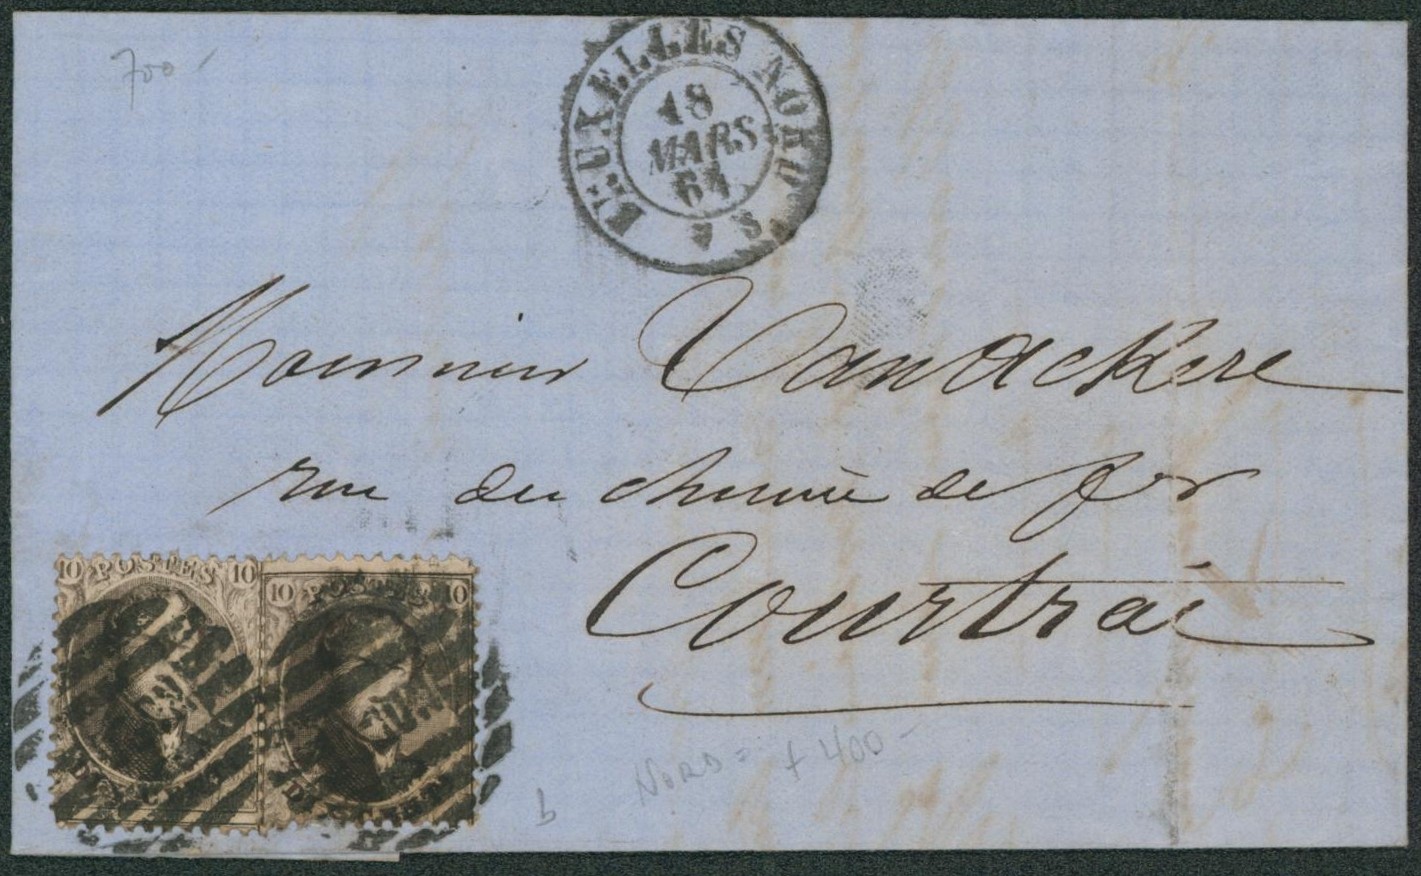 700
BRUXELLES NORD
18
MARS
64
4 S
Monsieur Vanackere
rue du chemin de fer
Courtrai
10 POSTES 10
10 POSTES 10
NORD = + 400 -
b